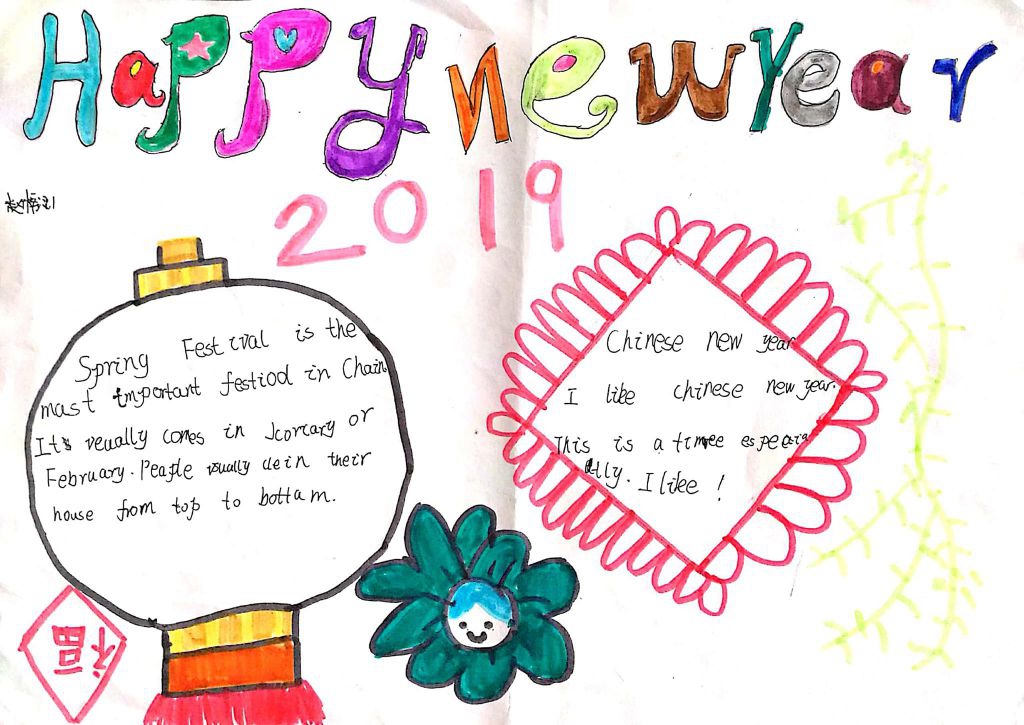 Happy new year
2019
Spring Festival is the
mast important festiod in Chain
It's veually comes in Jcoriary or
February. Peaple usually clein their
house from top to bottam.
福
Chinese new year
I like chinese new year.
This is a timee especia
lly. I like !